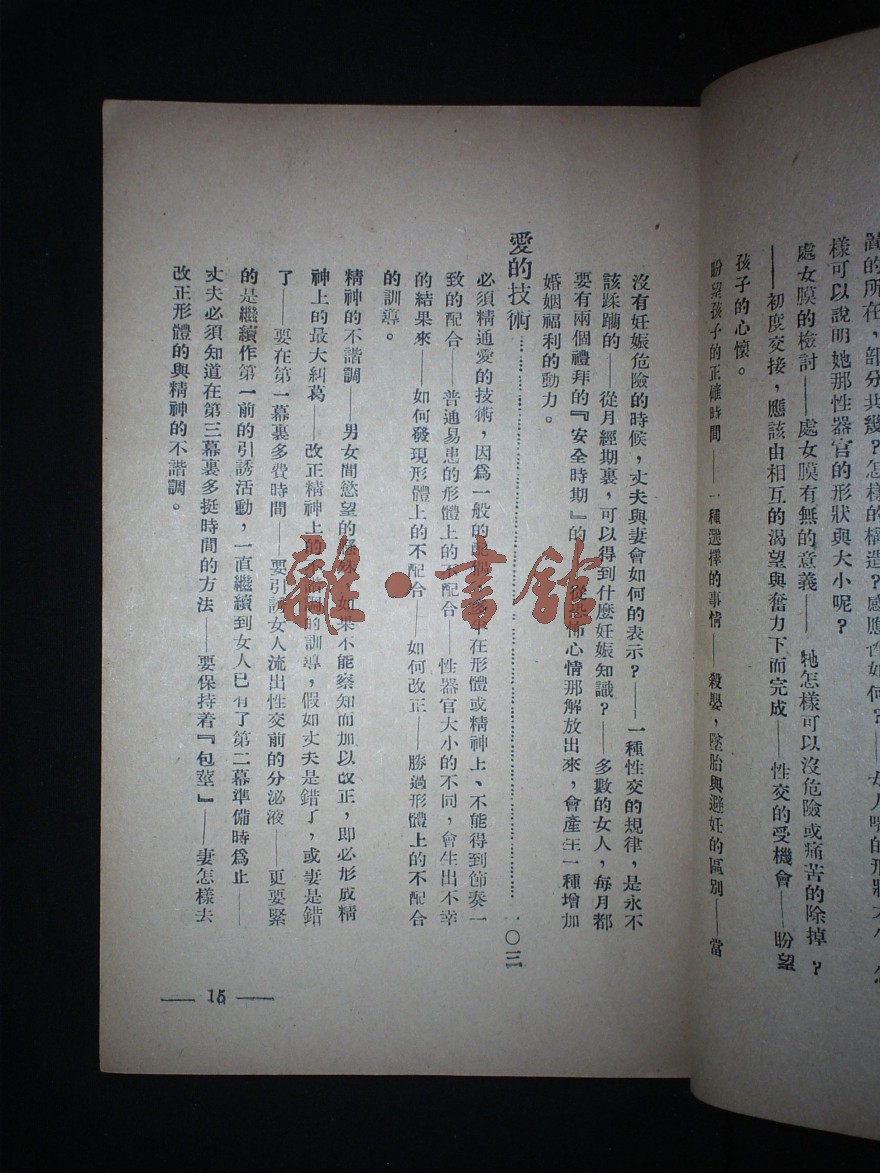 部分共幾？怎樣的構造？感應性如何？——女人
樣可以說明她那性器官的形狀與大小呢？
處女膜的檢討——處女膜有無的意義——牠怎樣可以沒危險或痛苦的除掉？
——初度交接，應該由相互的渴望與奮力下而完成——性交的受機會——盼望
孩子的心懷。
盼望孩子的正確時間——一種選擇的事情——殺嬰，墜胎與避妊的區別——當
沒有妊娠危險的時候，丈夫與妻會如何的表示？——一種性交的規律，是永不
該蹂躪的——從月經期裏，可以得到什麼妊娠知識？——多數的女人，每月都
要有兩個禮拜的『安全時期』的——從恐怖心情那解放出來，會產生一種增加
婚姻福利的動力。
愛的技術……一〇三
必須精通愛的技術，因爲一般的在形體或精神上、不能得到節奏一
致的配合——普通易患的形體上的不配合——性器官大小的不同，會生出不幸
的結果來——如何發現形體上的不配合——如何改正——勝過形體上的不配合
的訓導。
精神的不諧調——男女間慾望的如果不能察知而加以改正，即必形成精
神上的最大糾葛——改正精神上的不諧調的訓導，假如丈夫是錯了，或妻是錯
了——要在第一幕裏多費時間——要引誘女人流出性交前的分泌液——更要緊
的是繼續作第一前的引誘活動，一直繼續到女人已有了第二幕準備時爲止——
丈夫必須知道在第三幕裏多挺時間的方法——要保持着『包莖』——妻怎樣去
改正形體的與精神的不諧調。
— 15 —
雜·書館